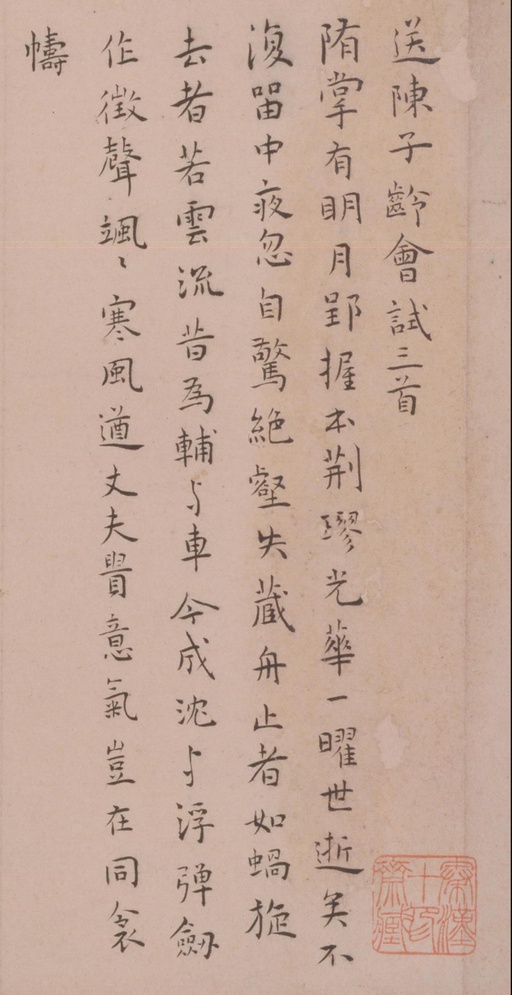 送陳子齡會試三首
隋掌有明月郢握本荆璆光華一曜世逝矣不
復畱中夜忽自驚絶壑失藏舟止者如蝸旋
去者若雲流昔爲輔与車今成沈与浮弹劔
作徵聲颯〻寒風遒丈夫貴意氣豈在同衾
幬